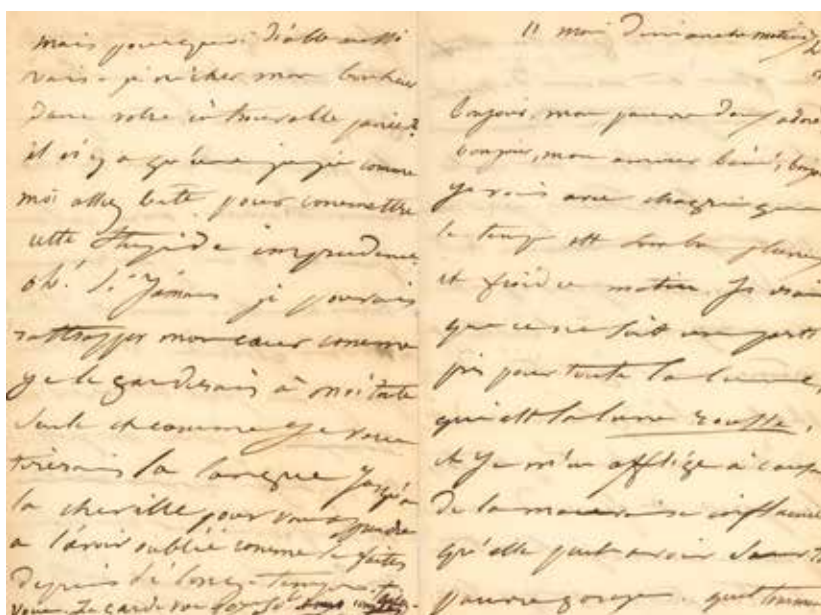 mais pourquoi diable aussi
vais-je nicher mon bonheur
dans votre introuvable
il n'y a qu'une juju comme
moi assez bête pour commettre
cette stupide imprudence
oh! si jamais je pouvais
rattrapper mon cœur comme
je le garderais à moi toute
seule et comme je vous
tirerais la langue jusqu'à
la cheville pour vous apprendre
à l'avoir oublié comme vous faites
depuis si longtemps.
11 mai Dimanche matin
bonjour, mon pauvre adoré
bonjour, mon amour béni,
je vois avec chagrin que
le temps est
et froid ce matin. Je crains
que ce ne soit un parti
pris pour toute la lune,
qui est la lune rousse,
et je m'en afflige à cause
de la mauvaise influence
qu'elle peut avoir sur
pauvre gorge.